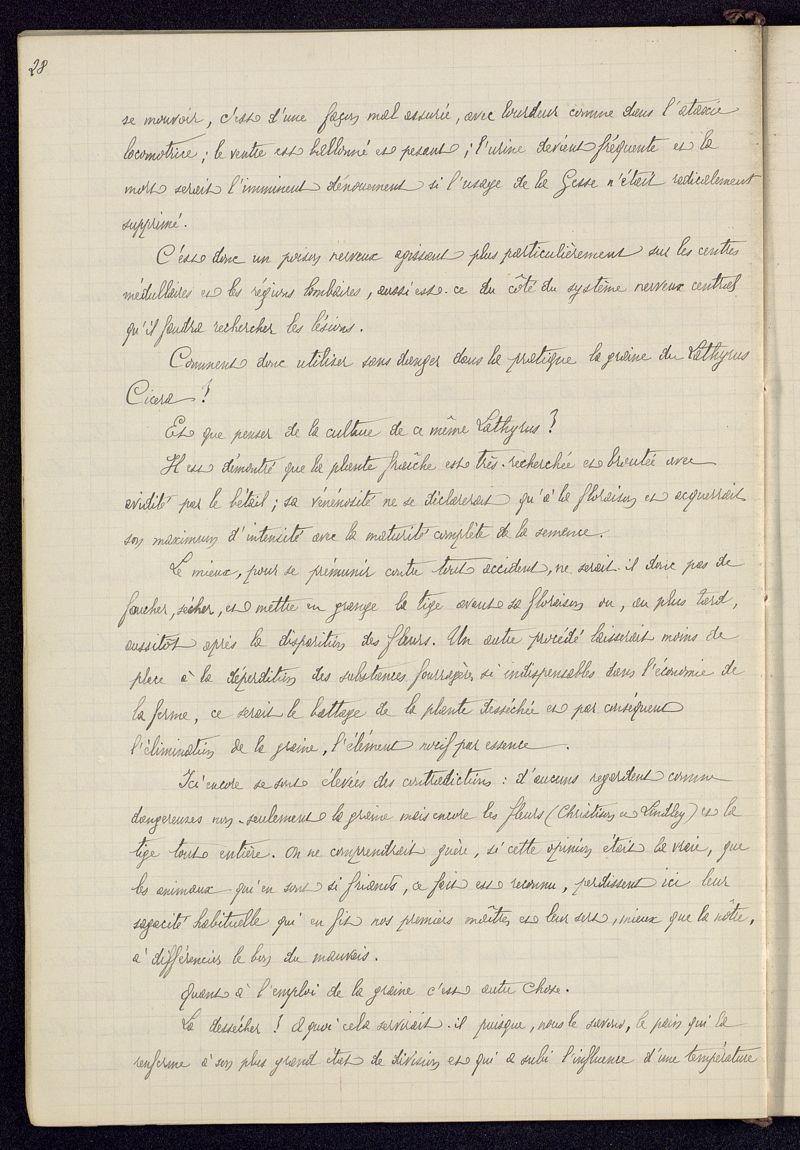 28
se mouvoir, c'est d'une façon mal assurée, avec lourdeur comme dans l'ataxie
locomotrice ; le ventre est ballonné et pesant ; l'urine devient fréquente et la
mort serait l'imminent dénouement si l'usage de la Gesse n'était radicalement
supprimé.
C'est donc un poison nerveux agissant plus particulièrement sur les centres
médullaires et les régions lombaires, aussi est-ce du côté du système nerveux central
qu'il faudra rechercher les lésions.
Comment donc utiliser sans danger dans la pratique la graine du Lathyrus
Cicera ?
Et que penser de la culture de ce même Lathyrus ?
Il est démontré que la plante fraîche est très-recherchée et broutée avec
avidité par le bétail ; sa vénénosité ne se déclarerait qu'à la floraison et acquerrait
son maximum d'intensité avec la maturité complète de la semence.
Le mieux, pour se prémunir contre tout accident, ne serait-il donc pas de
faucher, sécher, et mettre en grange la tige avant sa floraison ou, au plus tard,
aussitôt après la disparition des fleurs. Un autre procédé laisserait moins de
place à la déperdition des substances fourragères si indispensables dans l'économie de
la ferme, ce serait le battage de la plante desséchée et par conséquent
l'élimination de la graine, l'élément nocif par essence.
Ici encore se sont élevées des contradictions : d'aucuns regardent comme
dangereuses non-seulement la graine mais encore les fleurs (Christison et Lindley) et la
tige tout entière. On ne comprendrait guère, si cette opinion était la vraie, que
les animaux qui en sont si friands, ce fait est reconnu, perdissent ici leur
sagacité habituelle qui en fit nos premiers maîtres et leur sert, mieux que la nôtre,
à différencier le bon du mauvais.
Quant à l'emploi de la graine c'est autre chose.
La dessécher ! A quoi cela servirait-il puisque, nous le savons, le pain qui la
renferme à son plus grand état de division et qui a subi l'influence d'une température